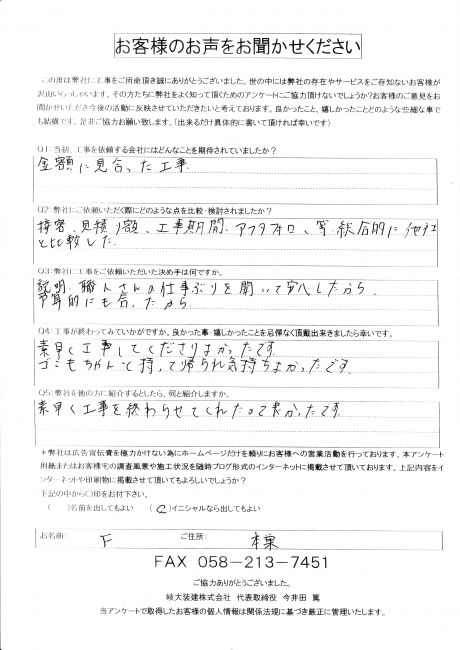 お客様のお声をお聞かせください
この度は弊社に工事をご用命頂き誠にありがとうございました。世の中には弊社の存在やサービスをご存知ないお客様が
沢山いらっしゃいます。その方たちに弊社をよく知って頂くためのアンケートにご協力頂けないでしょうか?お客様のご意見をお
聞かせいただき今後の活動に反映させていただきたいと考えております。良かったこと、嬉しかったことどのような些細な事で
も結構です。是非ご協力お願い致します。(出来るだけ具体的に書いて頂ければ幸いです)
Q1:当初、工事を依頼する会社にはどんなことを期待されていましたか?
金額に見合った工事
Q2:弊社にご依頼いただく際にどのような点を比較・検討されましたか?
接客、見積り額、工事期間、アフタフォロ、等 総合的に他社
と比較した
Q3:弊社に工事をご依頼いただいた決め手は何ですか。
説明、職人さんの仕事ぶりを聞いて安心したから
予算的にも合ったから
Q4:工事が終わってみていかがですか。良かった事・嬉しかったことを忌憚なく頂戴出来ましたら幸いです。
素早く工事してくださりよかったです
ゴミもちゃんと持って帰られ気持ちよかったです
Q5:弊社を他の方に紹介するとしたら、何と紹介しますか。
素早く工事を終わらせてくれたので良かったです
*弊社は広告宣伝費を極力かけない為にホームページだけを頼りにお客様への営業活動を行っております。本アンケート
用紙またはお客様宅の調査風景や施工状況を随時ブログ形式のインターネットに掲載させて頂いております。上記内容をイ
ンターネットや印刷物に掲載させて頂いてもよろしいでしょうか?
下記の中から○印をお付下さい。
( )名前を出してもよい (○)イニシャルなら出してもよい
お名前: F ご住所: 様
FAX 058-213-7451
ご協力ありがとうございました。
岐大装建株式会社 代表取締役 今井田 篤
当アンケートで取得したお客様の個人情報は関係法規に基づき厳正に管理いたします。